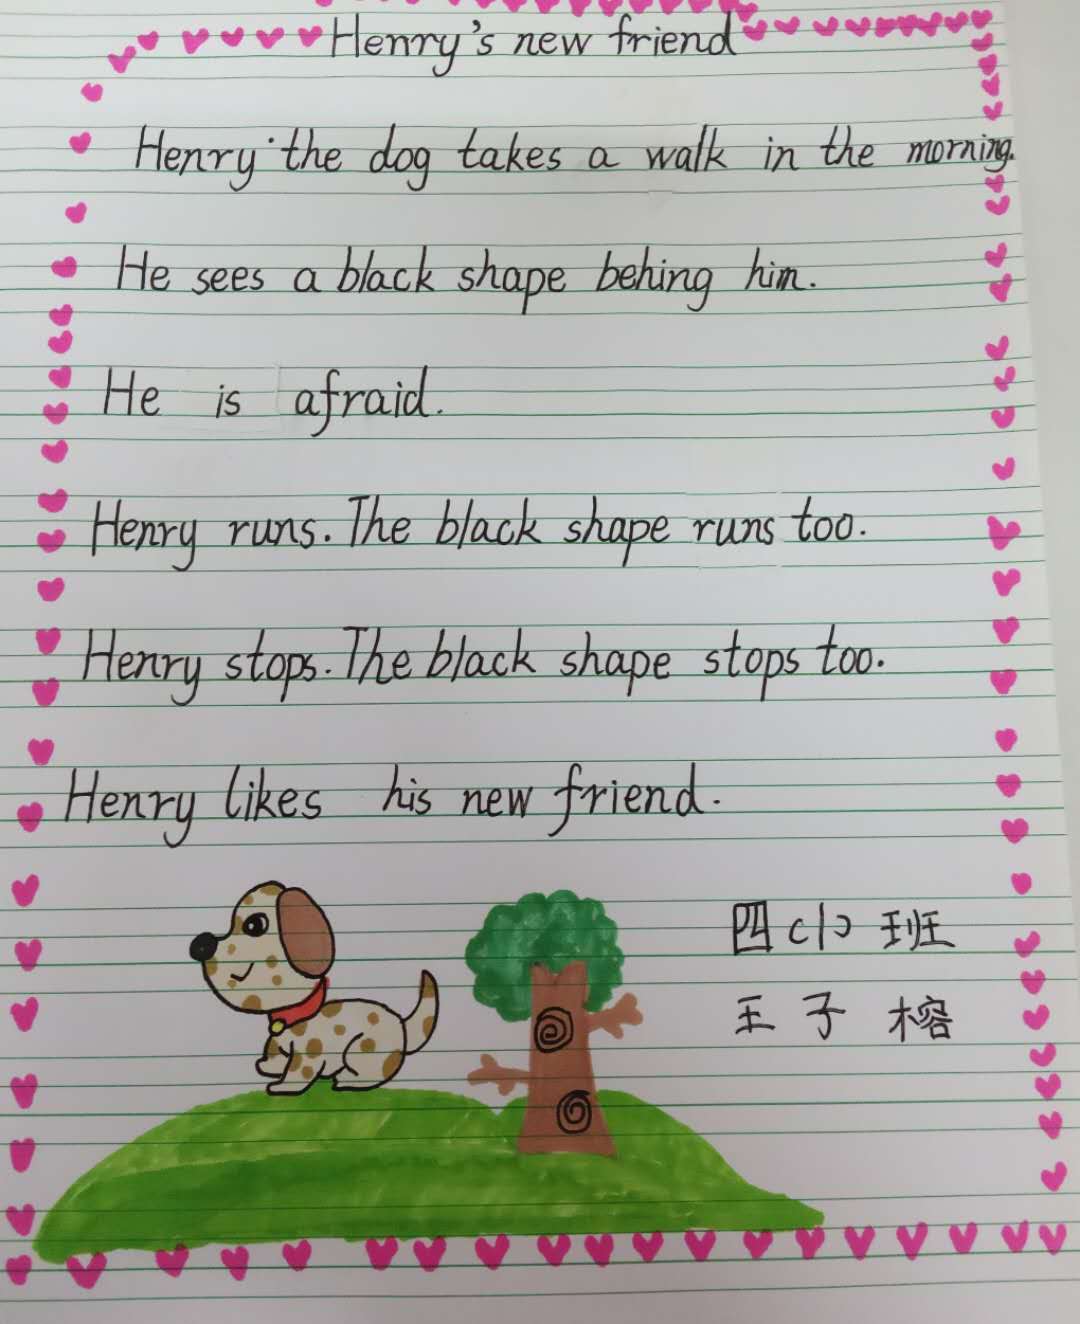 Henry's new friend
Henry the dog takes a walk in the morning.
He sees a black shape behing him.
He is afraid.
Henry runs. The black shape runs too.
Henry stops. The black shape stops too.
Henry likes his new friend.
四(1)班
王子榕